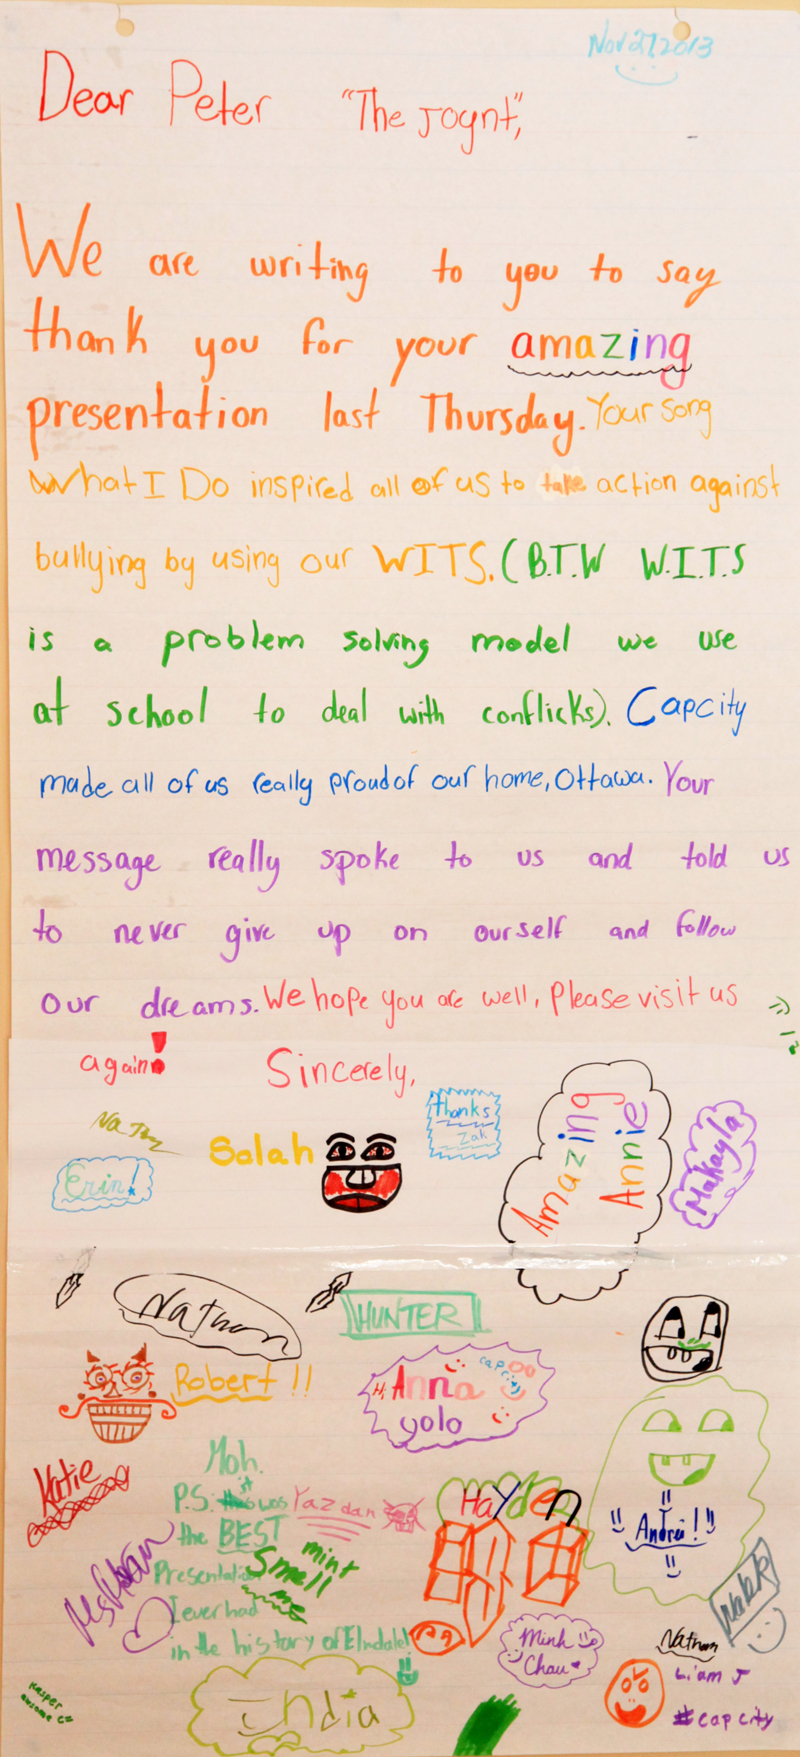 Nov 27 2013
Dear Peter "The Joynt",
We are writing to you to say
thank you for your amazing
presentation last Thursday. Your song
What I Do inspired all of us to take action against
bullying by using our WITS. (B.T.W W.I.T.S
is a problem solving model we use
at school to deal with conflicks). Capcity
made all of us really proud of our home, Ottawa. Your
message really spoke to us and told us
to never give up on ourself and follow
our dreams. We hope you are well, Please visit us
again!
Sincerely,
Nathan
Erin!
Salah
thanks
Zak
Amazing
Annie
Makayla
Nathan
HUNTER
Robert !!
Hi Anna
capcity
yolo
Katie
Moh.
P.S. it was
the BEST
Presentation
I ever had
in the history of Elmdale!
Yazdan
mint
Smell
me
Hayden
Andrei!
Minh
Chau
Nathan
Liam J
#capcity
Kasper
awsome
India